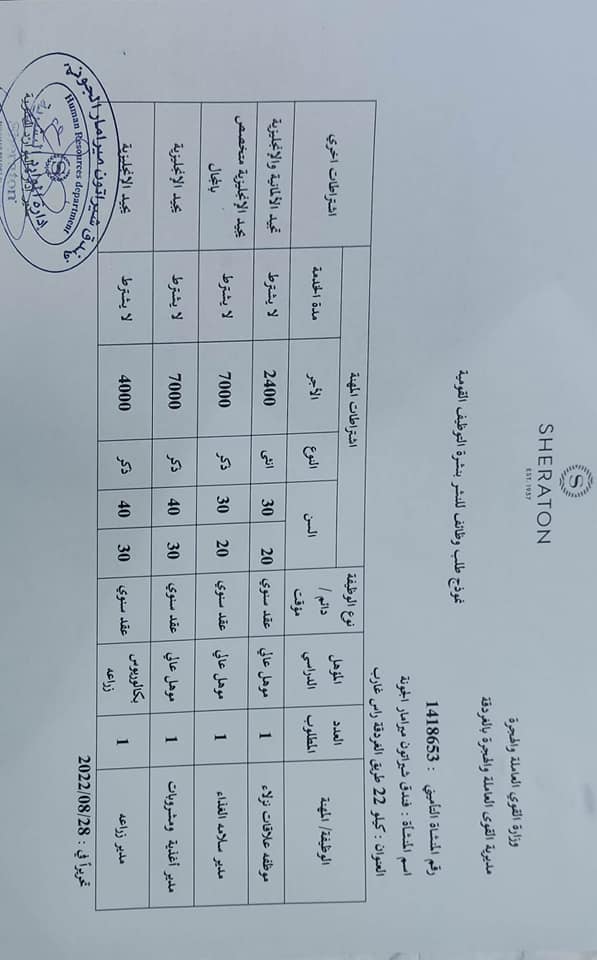 SHERATON
EST. 1937
وزارة القوى العاملة والهجرة
مديرية القوى العاملة والهجرة بالغردقة
نموذج طلب وظائف للنشر بنشرة التوظيف القومية
رقم المنشاة التاميني : 1418653
اسم المنشاة : فندق شيراتون ميرامار الجونة
العنوان : كيلو 22 طريق الغردقة راس غارب
الوظيفة/ المهنة العدد المطلوب المؤهل الدراسي نوع الوظيفة دائم / مؤقت اشتراطات المهنة اشتراطات اخري
السن النوع الأجر مدة الخدمة
موظفه علاقات نزلاء 1 موهل عالي عقد سنوي 20 30 انثى 2400 لا يشترط تجيد الألمانية والإنجليزية
مدير سلامه الغذاء 1 موهل عالي عقد سنوي 20 30 ذكر 7000 لا يشترط يجيد الإنجليزية متخصص بالمجال
مدير أغذية ومشروبات 1 موهل عالي عقد سنوي 30 40 ذكر 7000 لا يشترط يجيد الإنجليزية
مدير زراعه 1 بكالوريوس زراعه عقد سنوي 30 40 ذكر 4000 لا يشترط يجيد الإنجليزية
تحريراً في : 2022/08/28
فندق شيراتون ميرامار الجونة
Human Resources department
إدارة الموارد البشرية